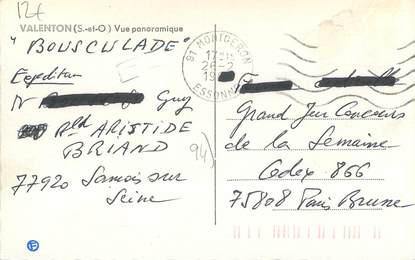 12€
VALENTON (S.-et-O) Vue panoramique
" BOUSCULADE "
Expediteur
Guy
Bld ARISTIDE
BRIAND
77920 Samois sur
Seine
94)
91 MONTGERON
17H
26-2
19
ESSONNE
Grand Jeu Concours
de la Semaine
Cedex 866
75808 Paris Brune